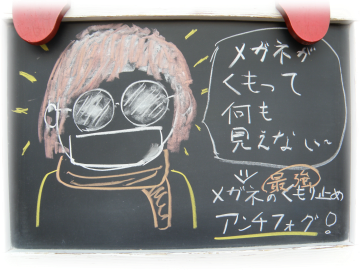 メガネが
くもって
何も
見えない〜
最強
メガネのくもり止め
アンチフォグ!